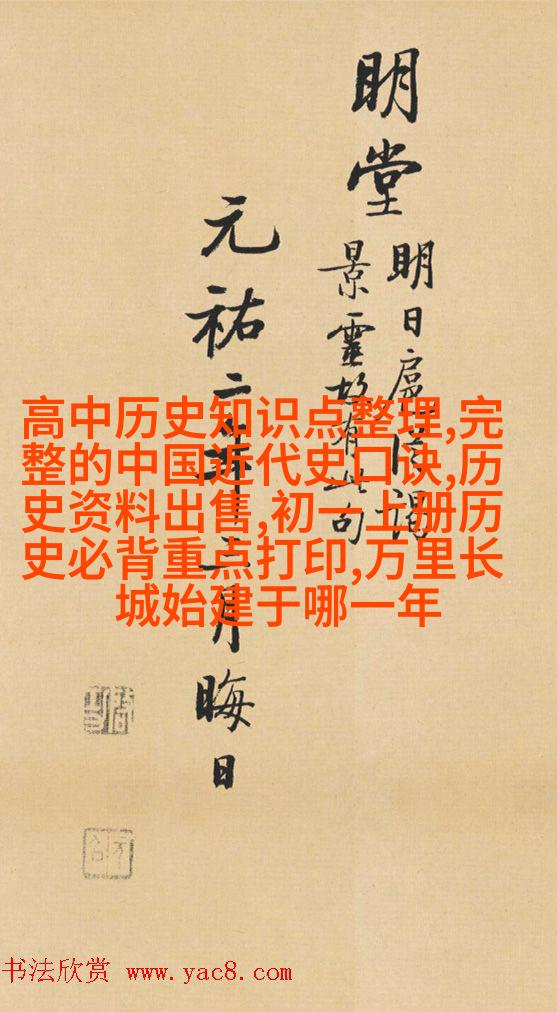 明堂
明日扈從謁
景靈故有此句
元祐二年月晦日
高中历史知识点整理,完
整的中国近代史口诀,历
史资料出售,初一上册历
史必背重点打印,万里长
城始建于哪一年
书法欣赏 www.yac8.com